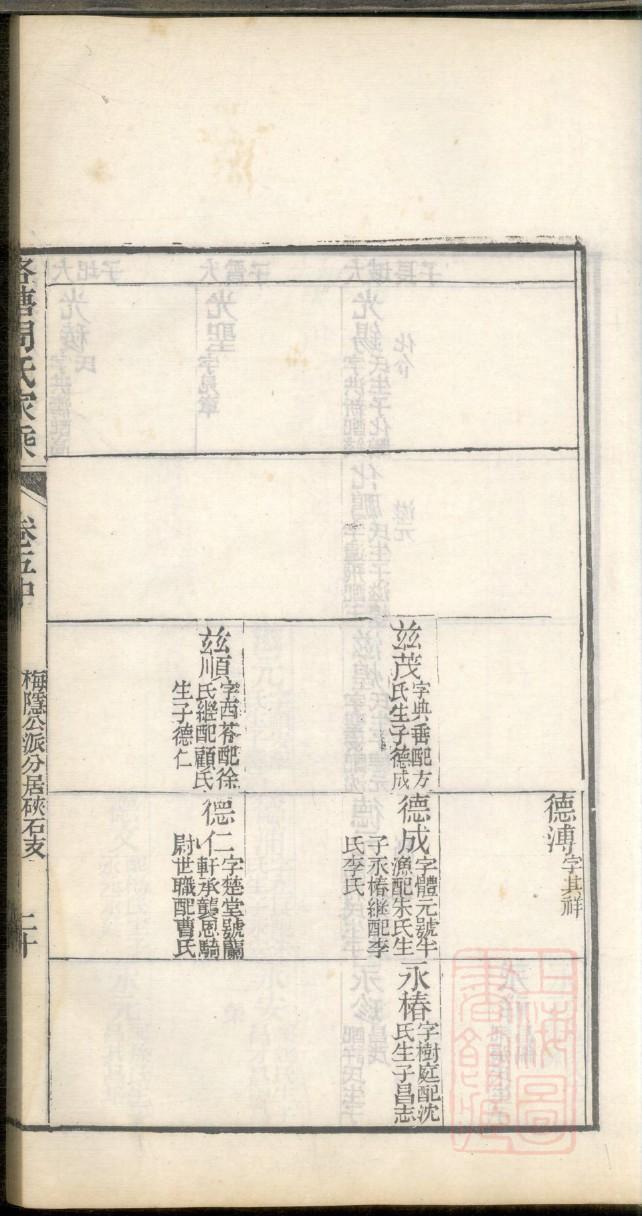 茲茂
字典配方
氏生子德成
茲順
字西苓配徐
氏繼配顧氏
生子德仁
德溥
字其祥
德成
字體元號半
漁配朱氏生
子永椿繼配李
氏李氏
德仁
字楚堂號蘭
軒承襲恩騎
尉世職配曹氏
永椿
字樹庭配沈
氏生子昌志
洛塘周氏家乘
卷五中
梅隱公派分居硤石支
二十
上海圖書館藏